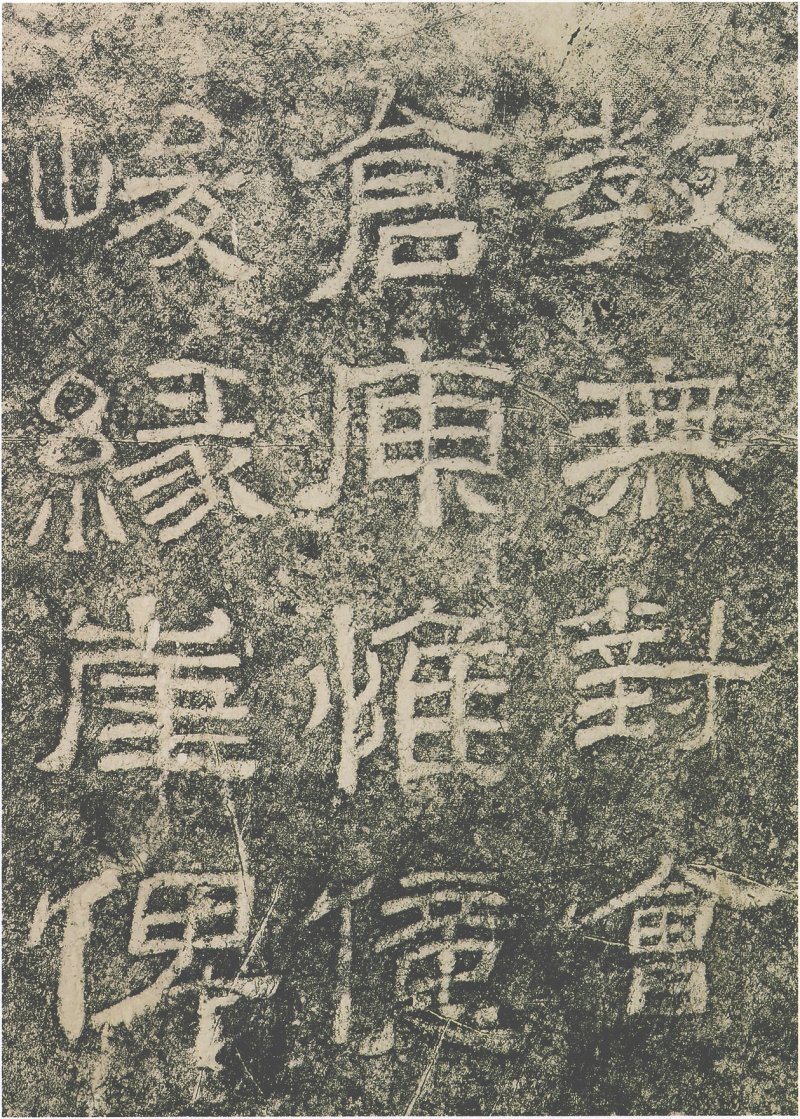 教無對會
倉庾惟億
峻緣崖俾